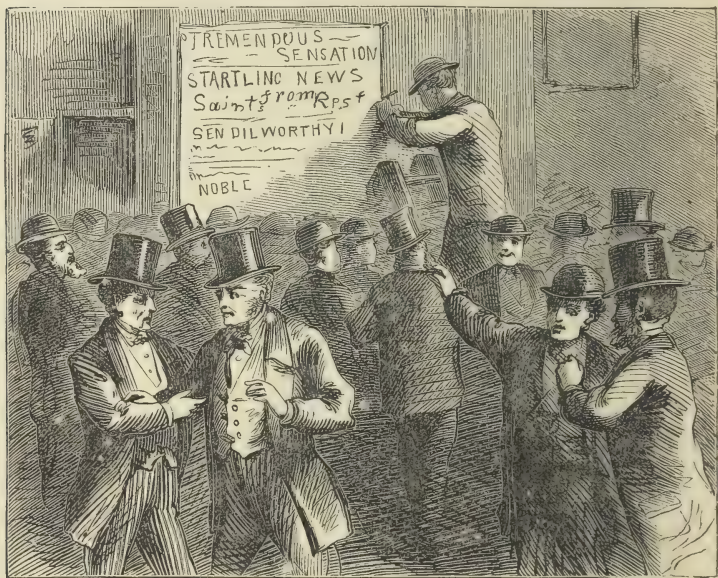 TREMENDOUS
SENSATION
STARTLING NEWS
Saint from Rest
SEN DILWORTHY!
NOBLE